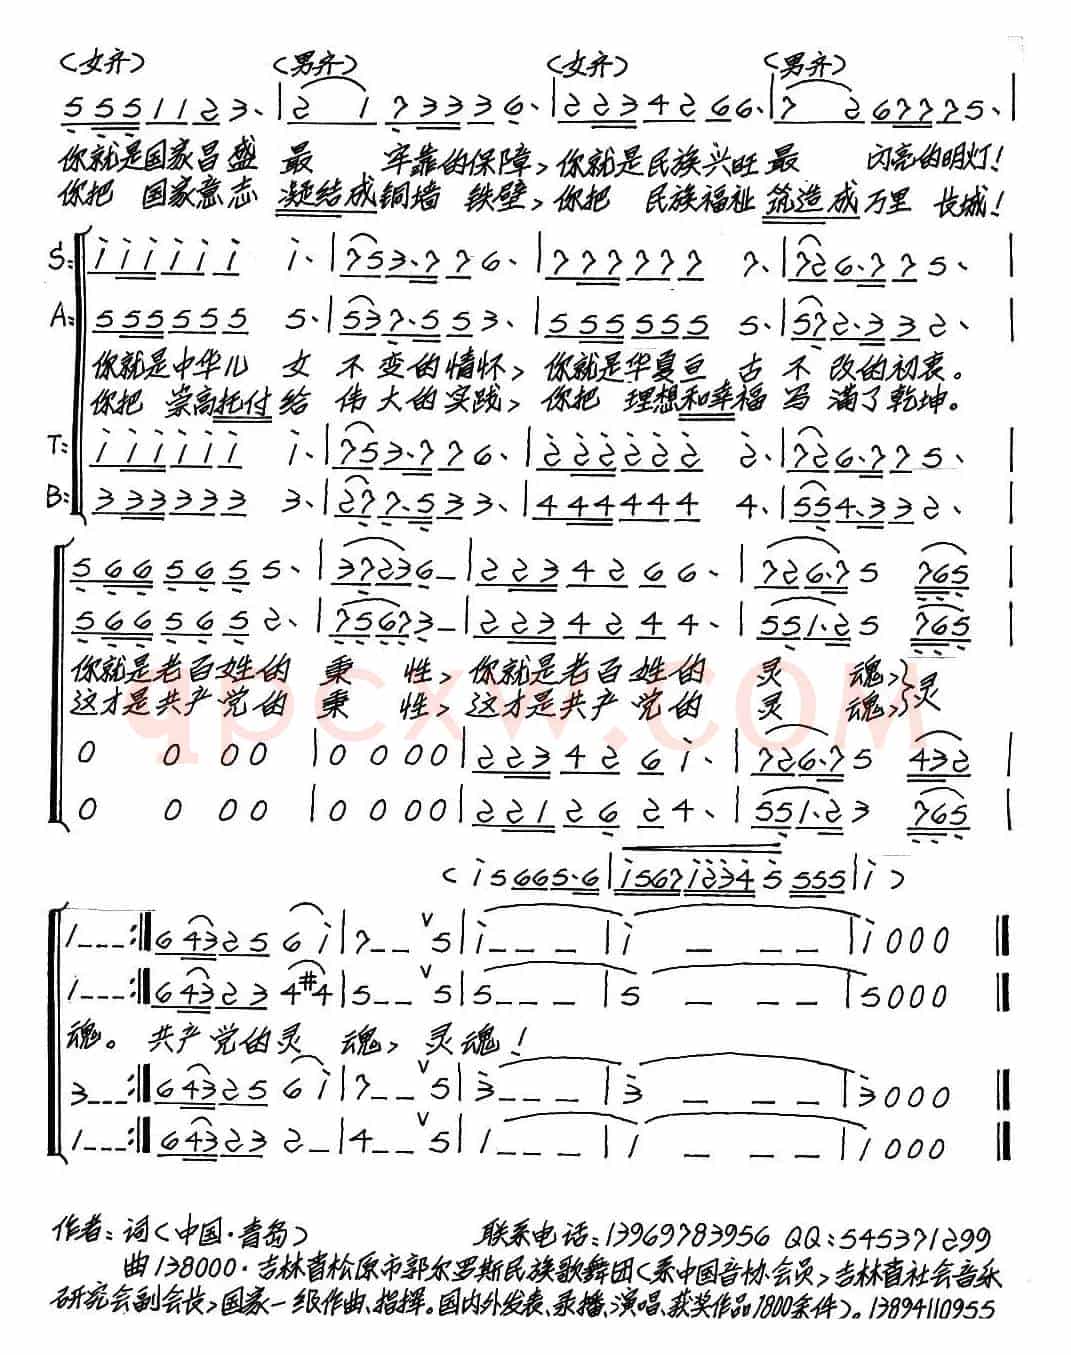 (女齐) (男齐) (女齐) (男齐)
5 5 5 1 1 2 3、| 2 1 7 3 3 3 6、| 2 2 3 4 2 6 6、| 7 2 6 7 7 7 5、|
你就是国家昌盛 最 牢靠的保障, 你就是民族兴旺最 闪亮的明灯!
你把 国家意志 凝结成铜墙 铁壁, 你把 民族福祉 筑造成万里 长城!
S: i i i i i i i、| 7 5 3、7 7 6、| 7 7 7 7 7 7 7、| 7 2 6、7 7 5、|
A: 5 5 5 5 5 5 5、| 5 3 7、5 5 3、| 5 5 5 5 5 5 5、| 5 7 2、3 3 2、|
你就是中华儿 女 不 变的情怀, 你就是华夏亘 古 不 改的初衷。
你把 崇高托付给 伟 大的实践, 你把 理想和幸福 写 满了乾坤。
T: i i i i i i i、| 7 5 3、7 7 6、| 2 2 2 2 2 2 2、| 7 2 6、7 7 5、|
B: 3 3 3 3 3 3 3、| 2 7 7、5 3 3、| 4 4 4 4 4 4 4、| 5 5 4、3 3 2、|
5 6 6 5 6 5 5、| 3 7 2 3 6 – | 2 2 3 4 2 6 6、| 7 2 6、7 5 7 6 5
5 6 6 5 6 5 2、| 7 5 6 7 3 – | 2 2 3 4 2 4 4、| 5 5 1、2 5 7 6 5
你就是老百姓的 秉 性, 你就是老百姓的 灵 魂, 灵
这才是共产党的 秉 性, 这才是共产党的 灵 魂, 灵
0 0 0 0 | 0 0 0 0 | 2 2 3 4 2 6 i、| 7 2 6、7 5 4 3 2 |
0 0 0 0 | 0 0 0 0 | 2 2 1 2 6 2 4、| 5 5 1、2 3 7 6 5 |
( i 5 6 6 5、6 | i 5 6 7 i 2 3 4 5 5 5 5 | i )
1 – – – :‖ 6 4 3 2 5 6 i | 7 – – ∨ 5 | i – – – | i – – – | i 0 0 0 ‖
1 – – – :‖ 6 4 3 2 3 4 #4 | 5 – – ∨ 5 | 5 – – – | 5 – – – | 5 0 0 0 ‖
魂。 共产党的灵 魂, 灵魂!
3 – – – :‖ 6 4 3 2 5 6 i | 7 – – ∨ 5 | 3 – – – | 3 – – – | 3 0 0 0 ‖
1 – – – :‖ 6 4 3 2 3 2 – | 4 – – ∨ 5 | 1 – – – | 1 – – – | 1 0 0 0 ‖
作者: 词(中国·青岛) 联系电话:13969783956 QQ:545371299
曲138000·吉林省松原市郭尔罗斯民族歌舞团(系中国音协会员,吉林省社会音乐
研究会副会长,国家一级作曲、指挥。国内外发表、录播、演唱、获奖作品1800余件)。13894110955
qpcxw.com